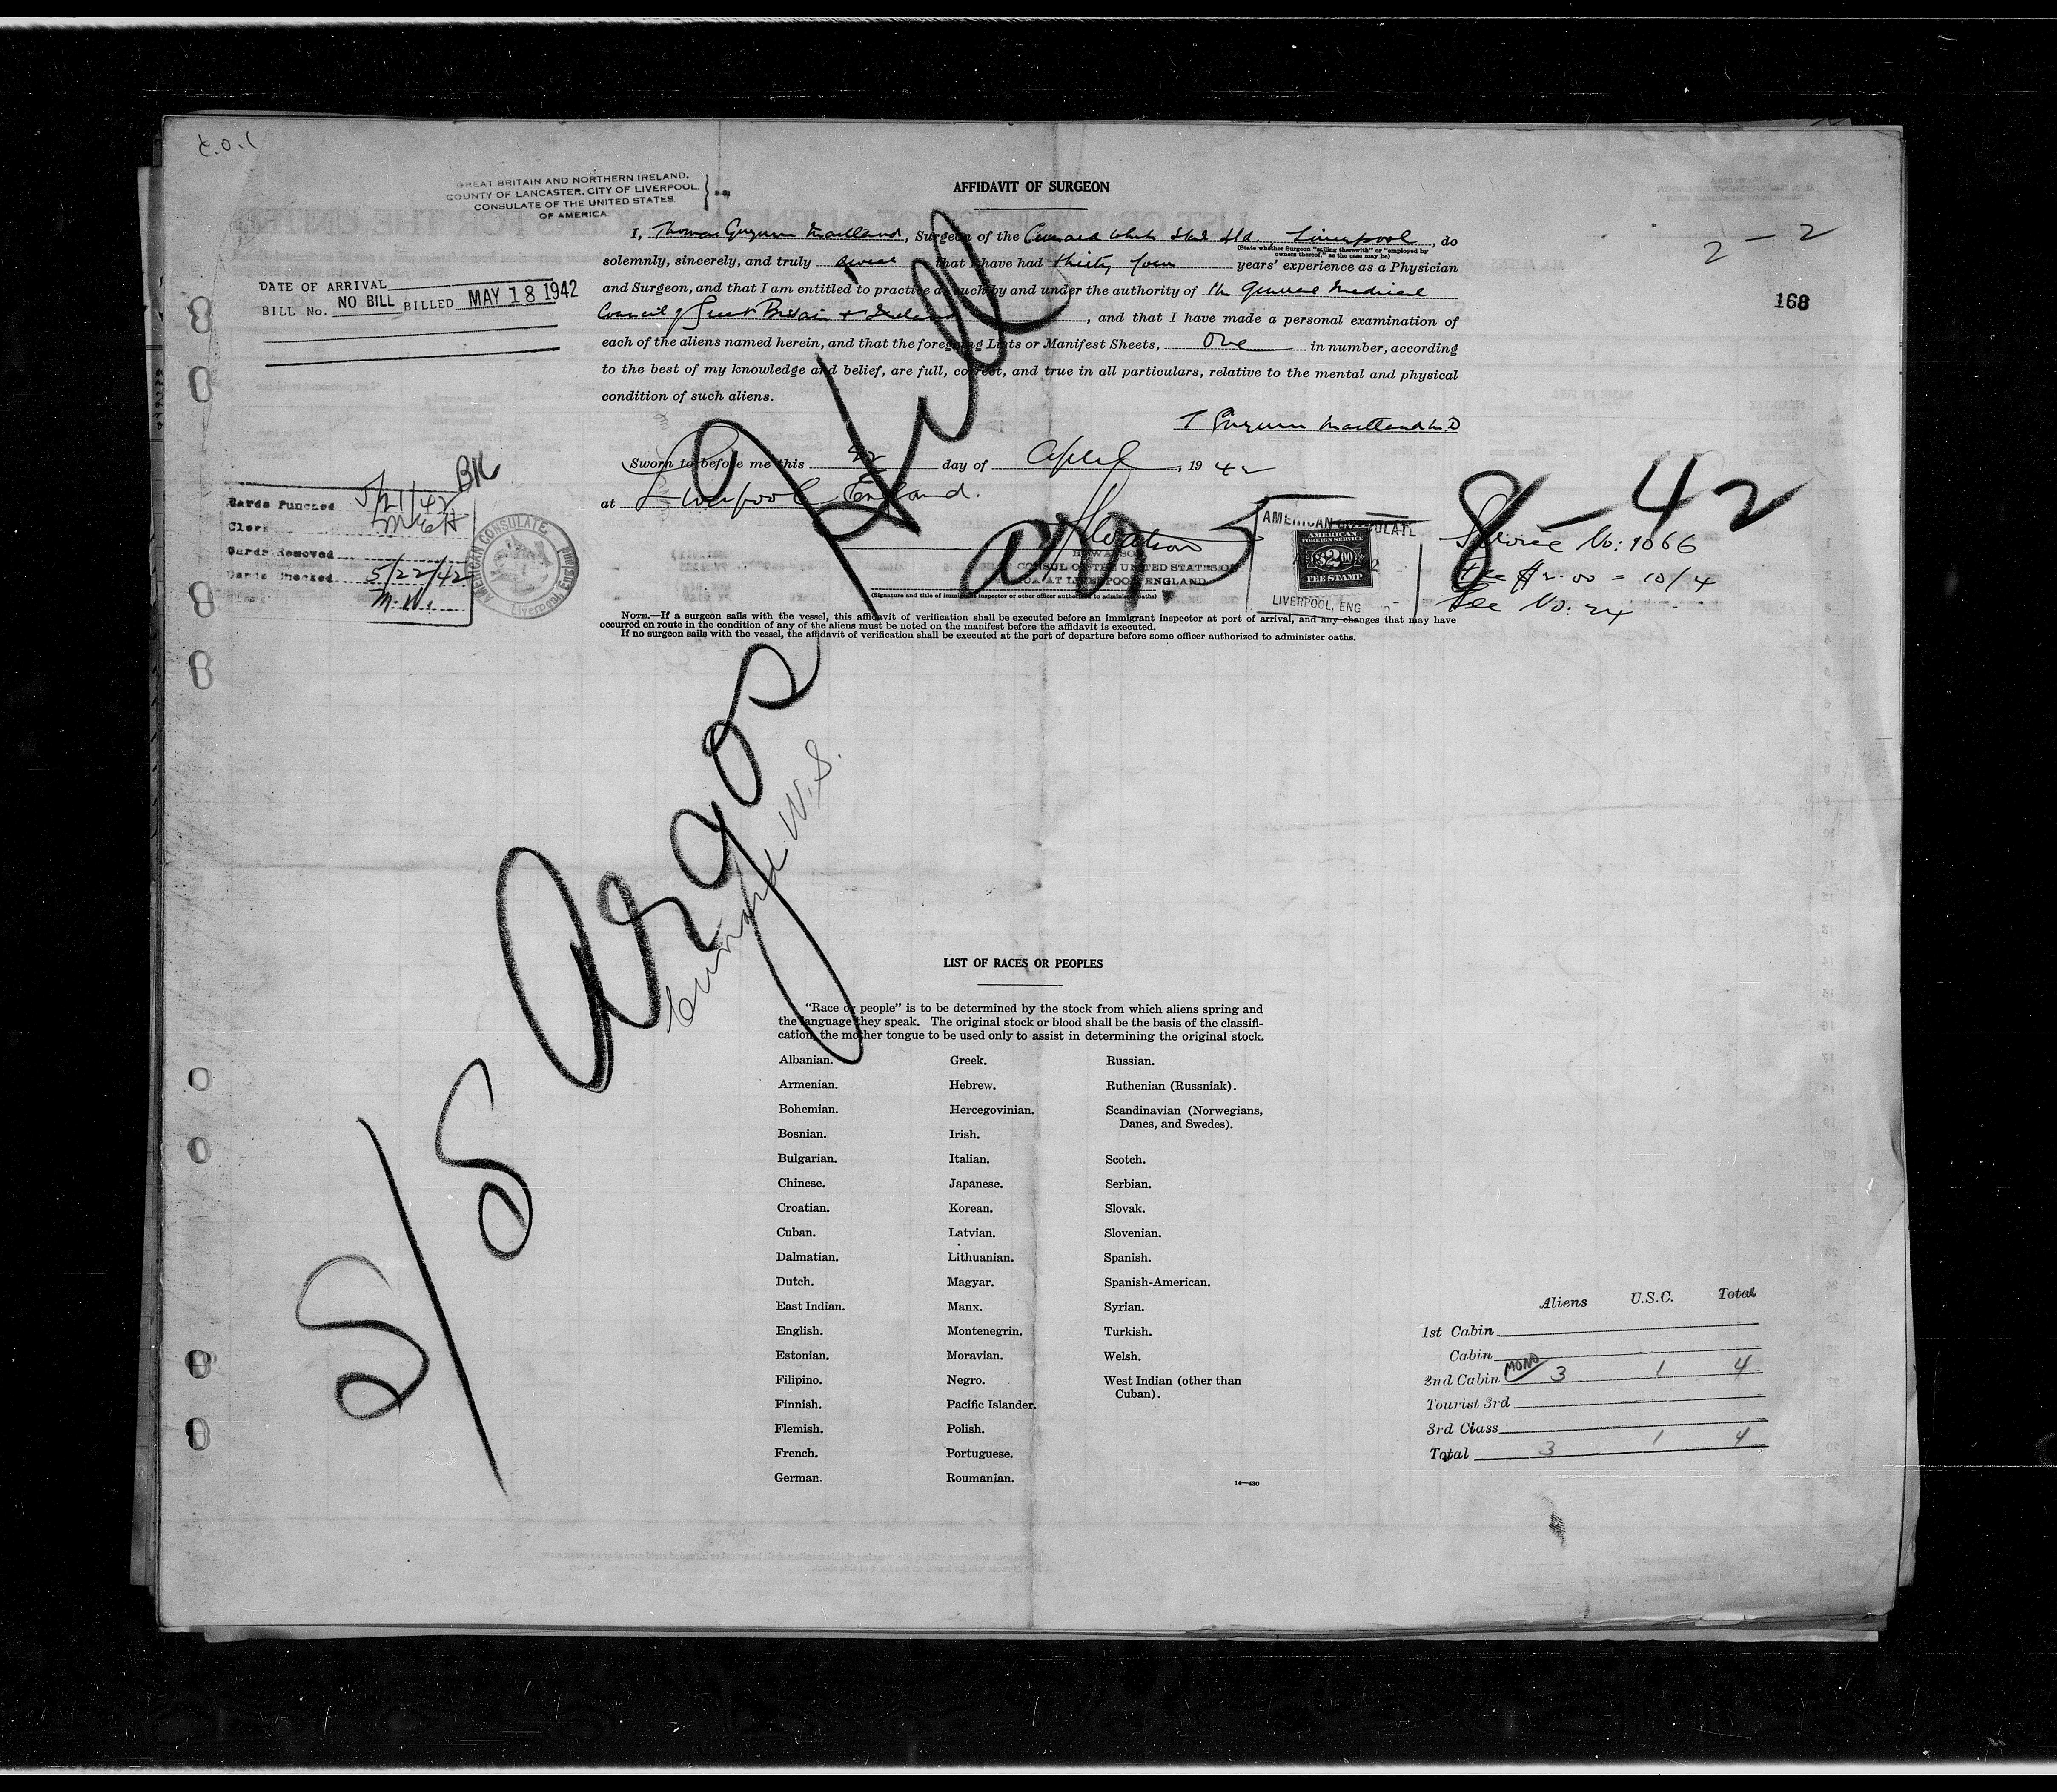 2 - 2
168
GREAT BRITAIN AND NORTHERN IRELAND.
COUNTY OF LANCASTER, CITY OF LIVERPOOL.
CONSULATE OF THE UNITED STATES
OF AMERICA
DATE OF ARRIVAL
BILL No. NO BILL BILLED MAY 18 1942
AFFIDAVIT OF SURGEON
I, Thomas Maitland, Surgeon of the Cunard White Star Ltd. Liverpool, do
(State whether Surgeon "sailing therewith" or "employed by
owners thereof," as the case may be)
solemnly, sincerely, and truly swear that I have had thirty four years' experience as a Physician
and Surgeon, and that I am entitled to practice as such by and under the authority of the General Medical
Council of Great Britain & Ireland, and that I have made a personal examination of
each of the aliens named herein, and that the foregoing Lists or Manifest Sheets, One in number, according
to the best of my knowledge and belief, are full, correct, and true in all particulars, relative to the mental and physical
condition of such aliens.
T Maitland M.D
Sworn to before me this day of April, 1942
at Liverpool England.
H WATSON
CONSUL OF THE UNITED STATES OF
AMERICA AT LIVERPOOL, ENGLAND
(Signature and title of immigrant inspector or other officer authorized to administer oaths)
AMERICAN CONSULATE
AMERICAN
FOREIGN SERVICE
$2.00
FEE STAMP
LIVERPOOL, ENG
Service No: 1066
Fee $2.00 = 10/4
Fee No: 24
5-8-42
Cards Punched 5/21/42 BK
Clerk
Cards Removed
Cards Checked 5/22/42
M.W.
AMERICAN CONSULATE
Liverpool, England
NOTE.—If a surgeon sails with the vessel, this affidavit of verification shall be executed before an immigrant inspector at port of arrival, and any changes that may have
occurred en route in the condition of any of the aliens must be noted on the manifest before the affidavit is executed.
If no surgeon sails with the vessel, the affidavit of verification shall be executed at the port of departure before some officer authorized to administer oaths.
S/S Argos Hill
LIST OF RACES OR PEOPLES
"Race or people" is to be determined by the stock from which aliens spring and
the language they speak. The original stock or blood shall be the basis of the classifi-
cation, the mother tongue to be used only to assist in determining the original stock.
Albanian.
Armenian.
Bohemian.
Bosnian.
Bulgarian.
Chinese.
Croatian.
Cuban.
Dalmatian.
Dutch.
East Indian.
English.
Estonian.
Filipino.
Finnish.
Flemish.
French.
German.
Greek.
Hebrew.
Hercegovinian.
Irish.
Italian.
Japanese.
Korean.
Latvian.
Lithuanian.
Magyar.
Manx.
Montenegrin.
Moravian.
Negro.
Pacific Islander.
Polish.
Portuguese.
Roumanian.
Russian.
Ruthenian (Russniak).
Scandinavian (Norwegians,
Danes, and Swedes).
Scotch.
Serbian.
Slovak.
Slovenian.
Spanish.
Spanish-American.
Syrian.
Turkish.
Welsh.
West Indian (other than
Cuban).
14—430
Aliens U.S.C. Total
1st Cabin
Cabin
2nd Cabin MONO 3 1 4
Tourist 3rd
3rd Class
Total 3 1 4